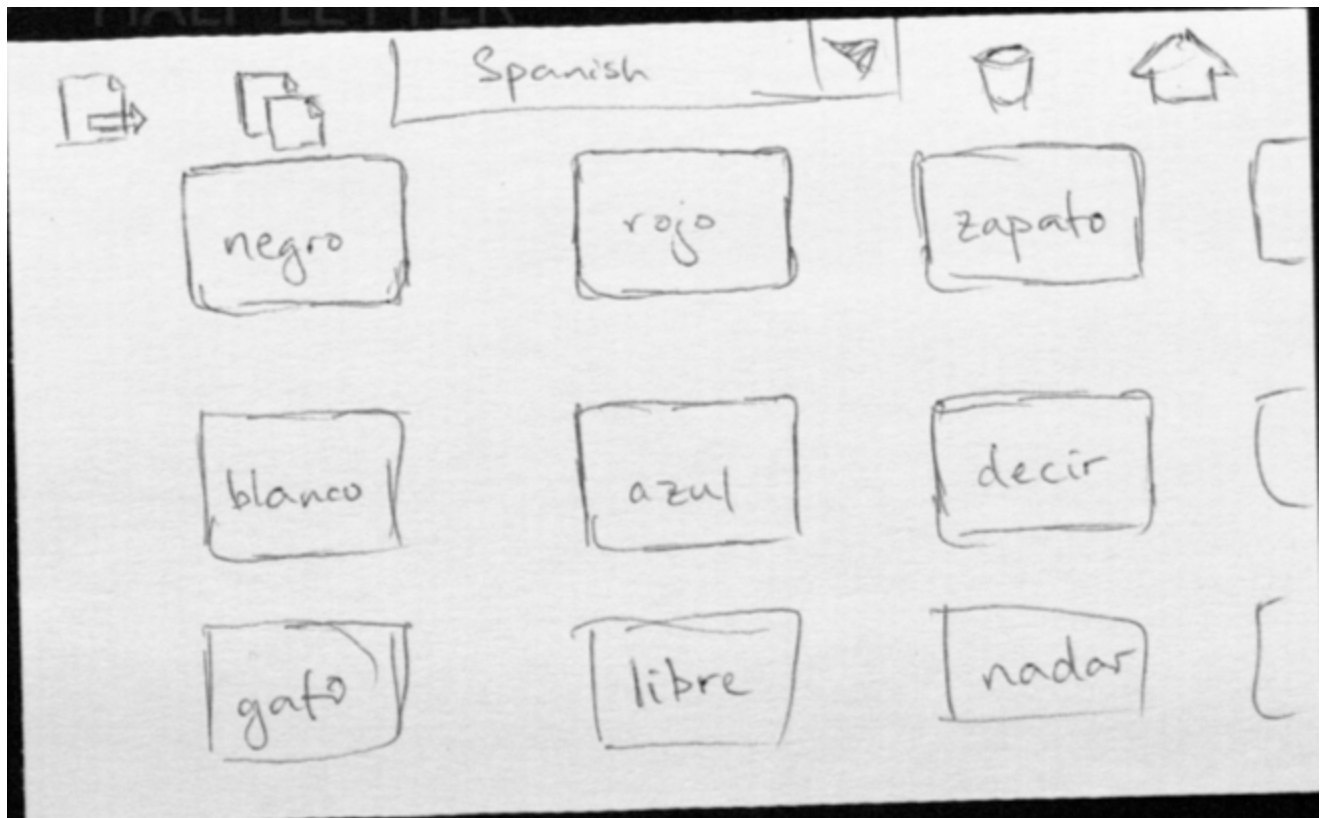 HALF LETTER
Spanish
negro rojo zapato
blanco azul decir
gato libre nadar